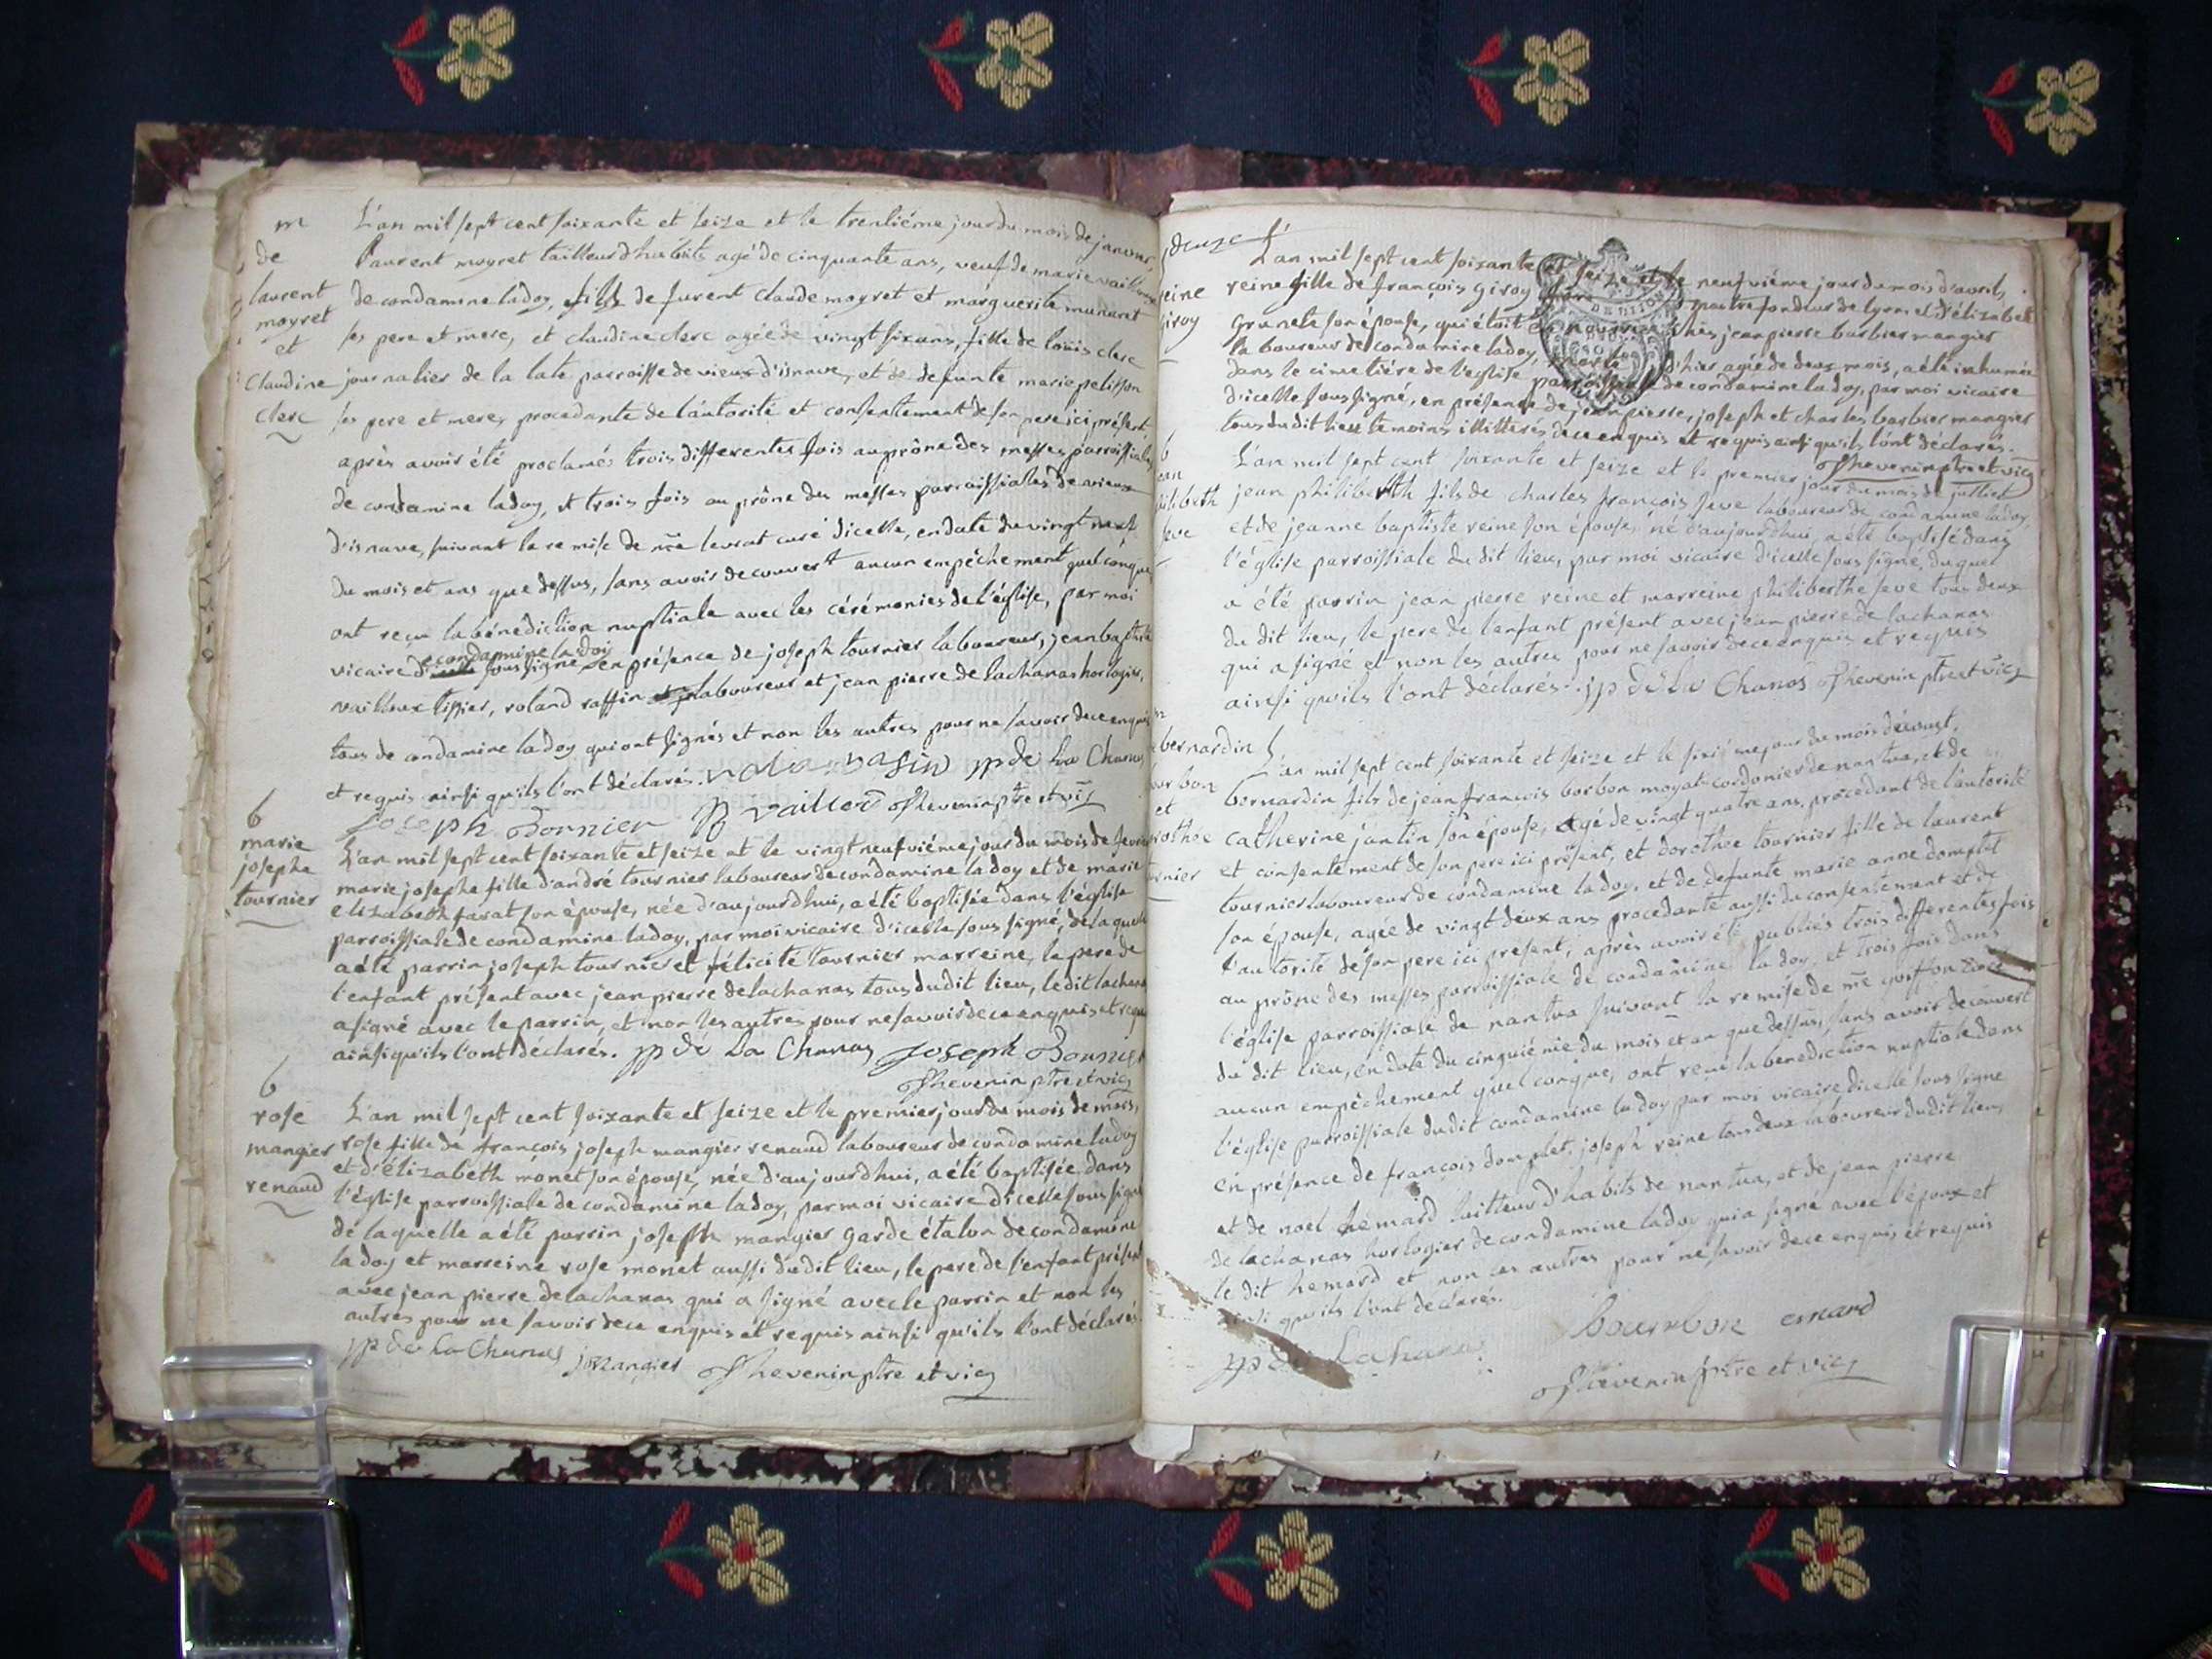 m
de
laurent
moyret
et
Claudine
clerc
L'an mil sept cent soixante et seize et le trentiéme jour du mois de janvier,
laurent moyret tailleur d'habits agé de cinquante ans, veuf de marie
de condamine la doy, fils de furent claude moyret et marguerite munaret
ses pere et mere, et claudine clerc agée de vingt six ans, fille de louis clerc
journalier de la late parroisse de vieux d'isnave, et de defunte marie pelisson
ses pere et mere, procedante de l'autorité et consentement de son pere ici présent
après avoir été proclamés trois differentes fois au prône des messes parroissiales
de condamine la doy, et trois fois au prône des messes parroissiales de vieux
d'isnave, suivant la remise de mre levrat curé d'icelle, en date du vingt neuf
du mois et ans que dessus, sans avoir decouvert aucun empêchement quelconque
ont reçu la bénédiction nuptiale avec les cérémonies de l'église, par moi
condamine la doy
vicaire de sous signé, en présence de joseph tournier laboureur, jean baptiste
vailloux tissier, roland raffin laboureur et jean pierre de lachanas horlogier,
tous de condamine la doy qui ont signés et non les autres pour ne savoir de ce enquis
et requis ainsi qu'ils l'ont déclarés. jp de La Chanas
joseph Tornier Thevenin ptre et vic
b
marie
josephe
tournier
L'an mil sept cent soixante et seize et le vingt neufviéme jour du mois de fevrier
marie josephe fille d'andré tournier laboureur de condamine la doy et de marie
elizabeth farat son épouse, née d'aujourdhui, a été baptisée dans l'église
parroissiale de condamine la doy, par moi vicaire d'icelle sous signé, de laquelle
a été parrin joseph tournier et félicité tournier marreine, le pere de
l'enfant présent avec jean pierre de lachanas tous du dit lieu, le dit lachanas
a signé avec le parrin, et non les autres pour ne savoir de ce enquis et requis
ainsi qu'ils l'ont déclarés. jp de La Chanas joseph Tornier
Thevenin ptre et vic
b
rose
mangier
renaud
L'an mil sept cent soixante et seize et le premier jour du mois de mars,
rose fille de françois joseph mangier renaud laboureur de condamine la doy
et d'élizabeth monet son épouse, née d'aujourdhui, a été baptisée dans
l'église parroissiale de condamine la doy, par moi vicaire d'icelle sous signé
de laquelle a été parrin joseph mangier garde étalon de condamine
la doy et marreine rose monet aussi du dit lieu, le pere de l'enfant présent
avec jean pierre de lachanas qui a signé avec le parrin et non les
autres pour ne savoir de ce enquis et requis ainsi qu'ils l'ont déclarés.
jp de La Chanas j mangier Thevenin ptre et vic
reine
giroy
L'an mil sept cent soixante et seize et le neufviéme jour du mois d'avril,
reine fille de françois giroy maitre fondeur de lyon et d'élizabet
son épouse, qui étoit en nourrice chés jean pierre barbier mangier
laboureur de condamine la doy, morte d'hier agée de deux mois, a été inhumée
dans le cimetiére de l'eglise parroissiale de condamine la doy, par moi vicaire
d'icelle sous signé, en présence de jean pierre, joseph et charles barbier mangier
tous du dit lieu temoins illitterés de ce enquis et requis ainsi qu'ils l'ont déclarés.
Thevenin ptre et vic
b
jean
philiberth
seve
L'an mil sept cent soixante et seize et le premier jour du mois de juillet
jean philiberth fils de charles françois seve laboureur de condamine la doy
et de jeanne baptiste reine son épouse, né d'aujourdhui, a été baptisé dans
l'église parroissiale du dit lieu, par moi vicaire d'icelle sous signé, du quel
a été parrin jean pierre reine et marreine philiberthe seve tous deux
du dit lieu, le pere de l'enfant présent avec jean pierre de lachanas
qui a signé et non les autres pour ne savoir de ce enquis et requis
ainsi qu'ils l'ont déclarés. jp de La Chanas Thevenin ptre et vic
bernardin
bourbon
et
dorothée
tournier
L'an mil sept cent soixante et seize et le sixiéme jour du mois d'aoust,
bernardin fils de jean françois borbon moyat cordonier de nantua, et de
catherine jantin son épouse, agé de vingt quatre ans, procedant de l'autorité
et consentement de son pere ici présent, et dorothée tournier fille de laurent
tournier laboureur de condamine la doy, et de defunte marie anne domplet
son épouse, agée de vingt deux ans procedante aussi du consentement et de
l'autorité de son pere ici present, après avoir été publiés trois differentes fois
au prône des messes parroissiale de condamine la doy, et trois fois dans
l'église parroissiale de nantua suivant la remise de mre
du dit lieu, en date du cinquiéme du mois et an que dessus, sans avoir decouvert
aucun empêchement quelconque, ont reçu la benediction nuptiale dans
l'église parroissiale du dit condamine la doy par moi vicaire d'icelle sous signé
en présence de françois domplet, joseph reine tous deux laboureur du dit lieu,
et de noel hemard tailleur d'habits de nantua, et de jean pierre
de lachanas horlogier de condamine la doy qui a signé avec l'époux et
le dit hemard et non les autres pour ne savoir de ce enquis et requis
ainsi qu'ils l'ont déclarés.
bourbon emard
jp de Lachanas
Thevenin ptre et vic